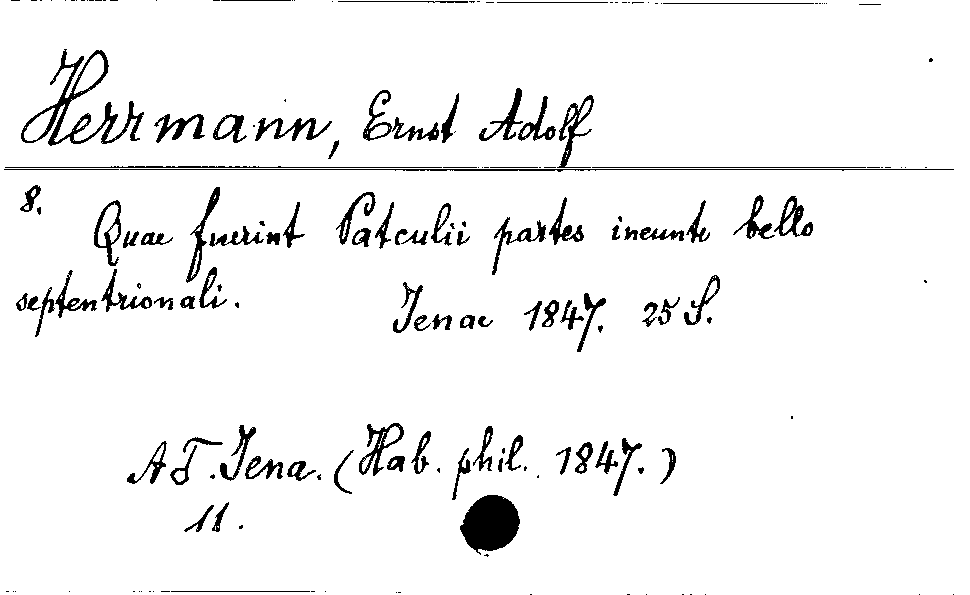 Herrmann, Ernst Adolf
8.
Quae fuerint Patculii partes ineunte bello
septentrionali.
Jenae 1847. 25 S.
AT. Jena. (Hab. phil. 1847.)
11.